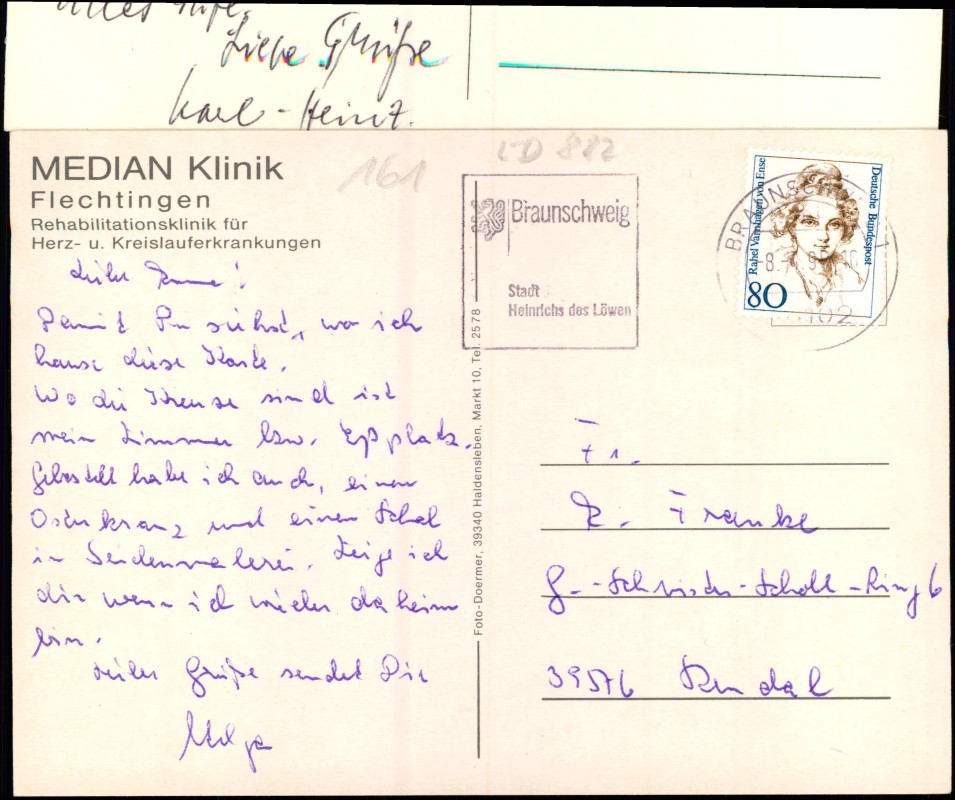 Alles Gute.
Liebe Grüße
Karl-Heinz.
MEDIAN Klinik
Flechtingen
Rehabilitationsklinik für
Herz- u. Kreislauferkrankungen
161
LD 882
Braunschweig
Stadt
Heinrichs des Löwen
BRAUNSCHWEIG 1
Rahel Varnhagen von Ense
Deutsche Bundespost
80
Foto-Doermer, 39340 Haldensleben, Markt 10, Tel. 25 78
Damit Du siehst, wo ich
hause diese Karte.
Wo die Kreuze sind ist
mein Zimmer bzw. Eßplatz.
Gebastelt habe ich auch, einen
Osterkranz und einen Schal
in Seidenmalerei. Zeige ich
dir wenn ich wieder daheim
bin.
Grüße sendet Dir
Helga
Fr.
E. Franke
G.-Schwister-Scholl-Ring 6
39576 Stendal